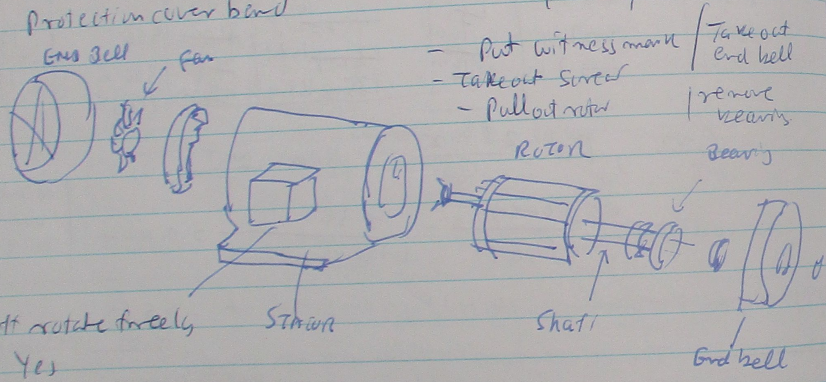 Protection cover band
End Bell
Fan
- Put witness mark / Take out end bell
- Takeout Screw
- Pull out rotor | remove bearing
ROTOR
Bearing
It rotate freely
Yes
STATOR
Shaft
End bell